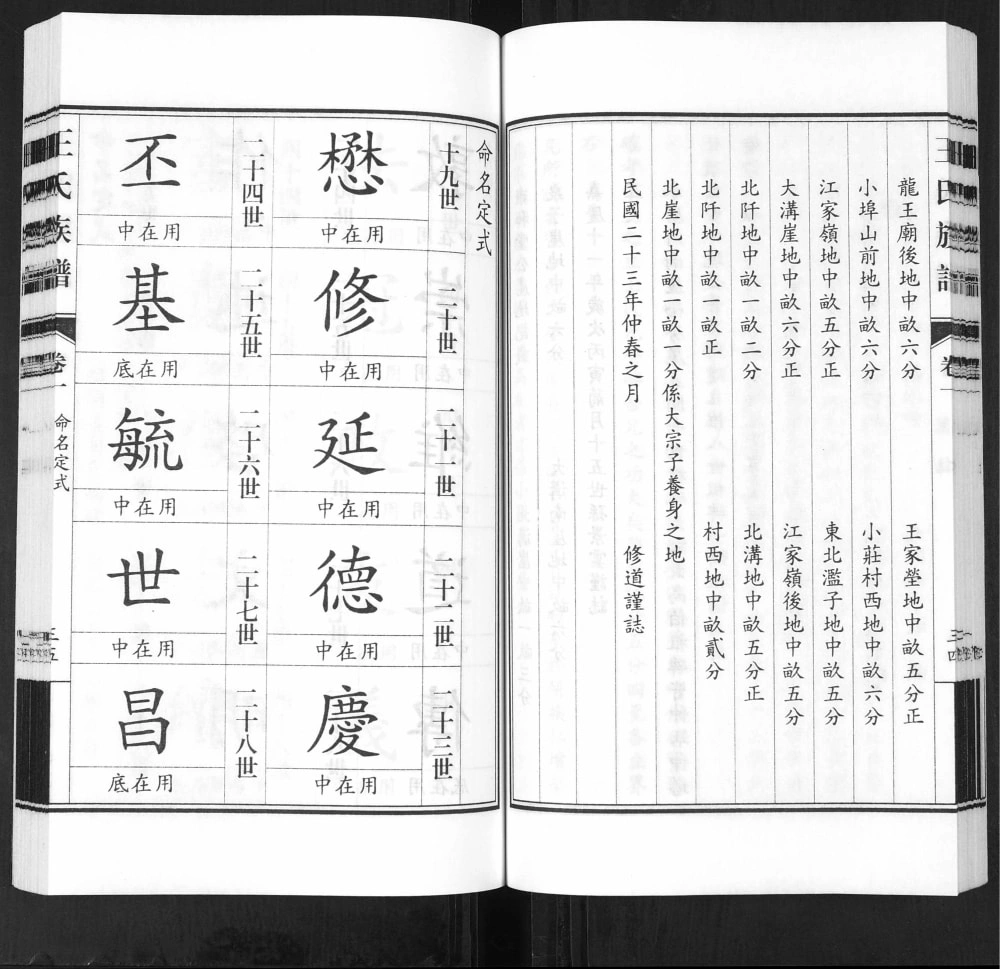 王氏族譜
卷一
三四
龍王廟後地中畝六分　王家塋地中畝五分正
小埠山前地中畝六分　小莊村西地中畝六分
江家嶺地中畝五分正　東北濫子地中畝五分
大溝崖地中畝六分正　江家嶺後地中畝五分
北阡地中畝一畝二分　北溝地中畝五分正
北阡地中畝一畝正　村西地中畝貳分
北崖地中畝一畝八分係大宗子養身之地
民國二十三年仲春之月　修道謹誌
命名定式
十九世
懋
中在用
二十世
修
中在用
二十一世
延
中在用
二十二世
德
中在用
二十三世
慶
中在用
二十四世
丕
中在用
二十五世
基
底在用
二十六世
毓
中在用
二十七世
世
中在用
二十八世
昌
底在用
王氏族譜
卷一
命名定式
三五